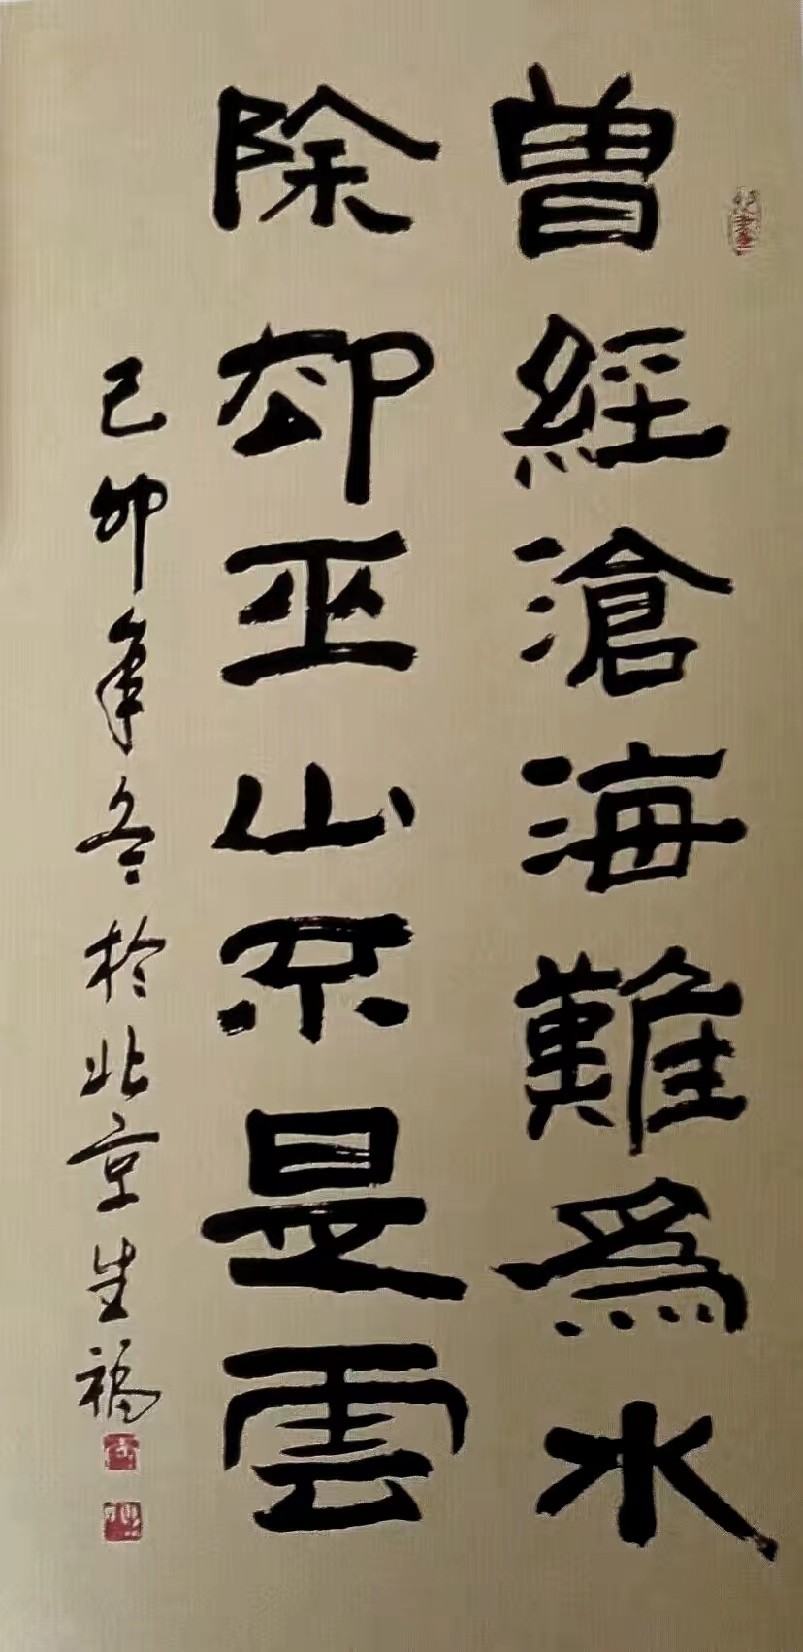 曾經滄海難為水
除却巫山不是雲
己卯年冬於北京生福